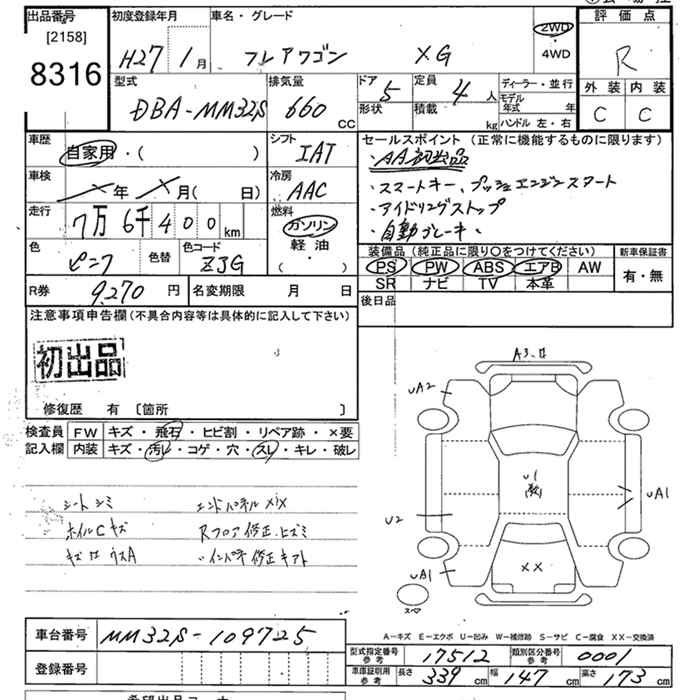 出品番号
[2158]
8316
初度登録年月
H27年 1月
車名・グレード
フレアワゴン XG
2WD
・
4WD
評価点
R
外装 内装
C C
型式
DBA-MM32S
排気量
660 CC
ドア 5
形状
定員 4人
積載 kg
ディーラー・並行
モデル年式 年
ハンドル 左・右
車歴
自家用・( )
シフト
IAT
セールスポイント (正常に機能するものに限ります)
・AA初出品
・スマートキー、プッシュエンジンスタート
・アイドリングストップ
・自動ブレーキ・
車検
年 月( 日)
冷房
AAC
走行
7万6千400km
燃料
ガソリン
軽油
( ・ )
色
ピンク
色替
色コード
ZJG
装備品 (純正品に限り○をつけてください)
PS PW ABS エアB AW
SR ナビ TV 本革
新車保証書
有・無
R券 9,270円
名変期限 月 日
後日品
注意事項申告欄 (不具合内容等は具体的に記入して下さい)
初出品
修復歴 有 〔箇所 〕
検査員記入欄
FW キズ・飛石・ヒビ割・リペア跡・×要
内装 キズ・汚レ・コゲ・穴・スレ・キレ・破レ
シートシミ
ホイルCキズ
エンドパネルXIX
Rフロア修正・ヒズミ
A3
UA2
U1
UA1
U2
XX
UA1
スペア
A-キズ E-エクボ U-凹み W-補修跡 S-サビ C-腐食 XX-交換済
車台番号 MM32S-109725
登録番号
型式指定番号 参考 17512
類別区分番号 参考 0001
車庫証明用 参考 長さ 339cm 幅 147cm 高さ 173cm